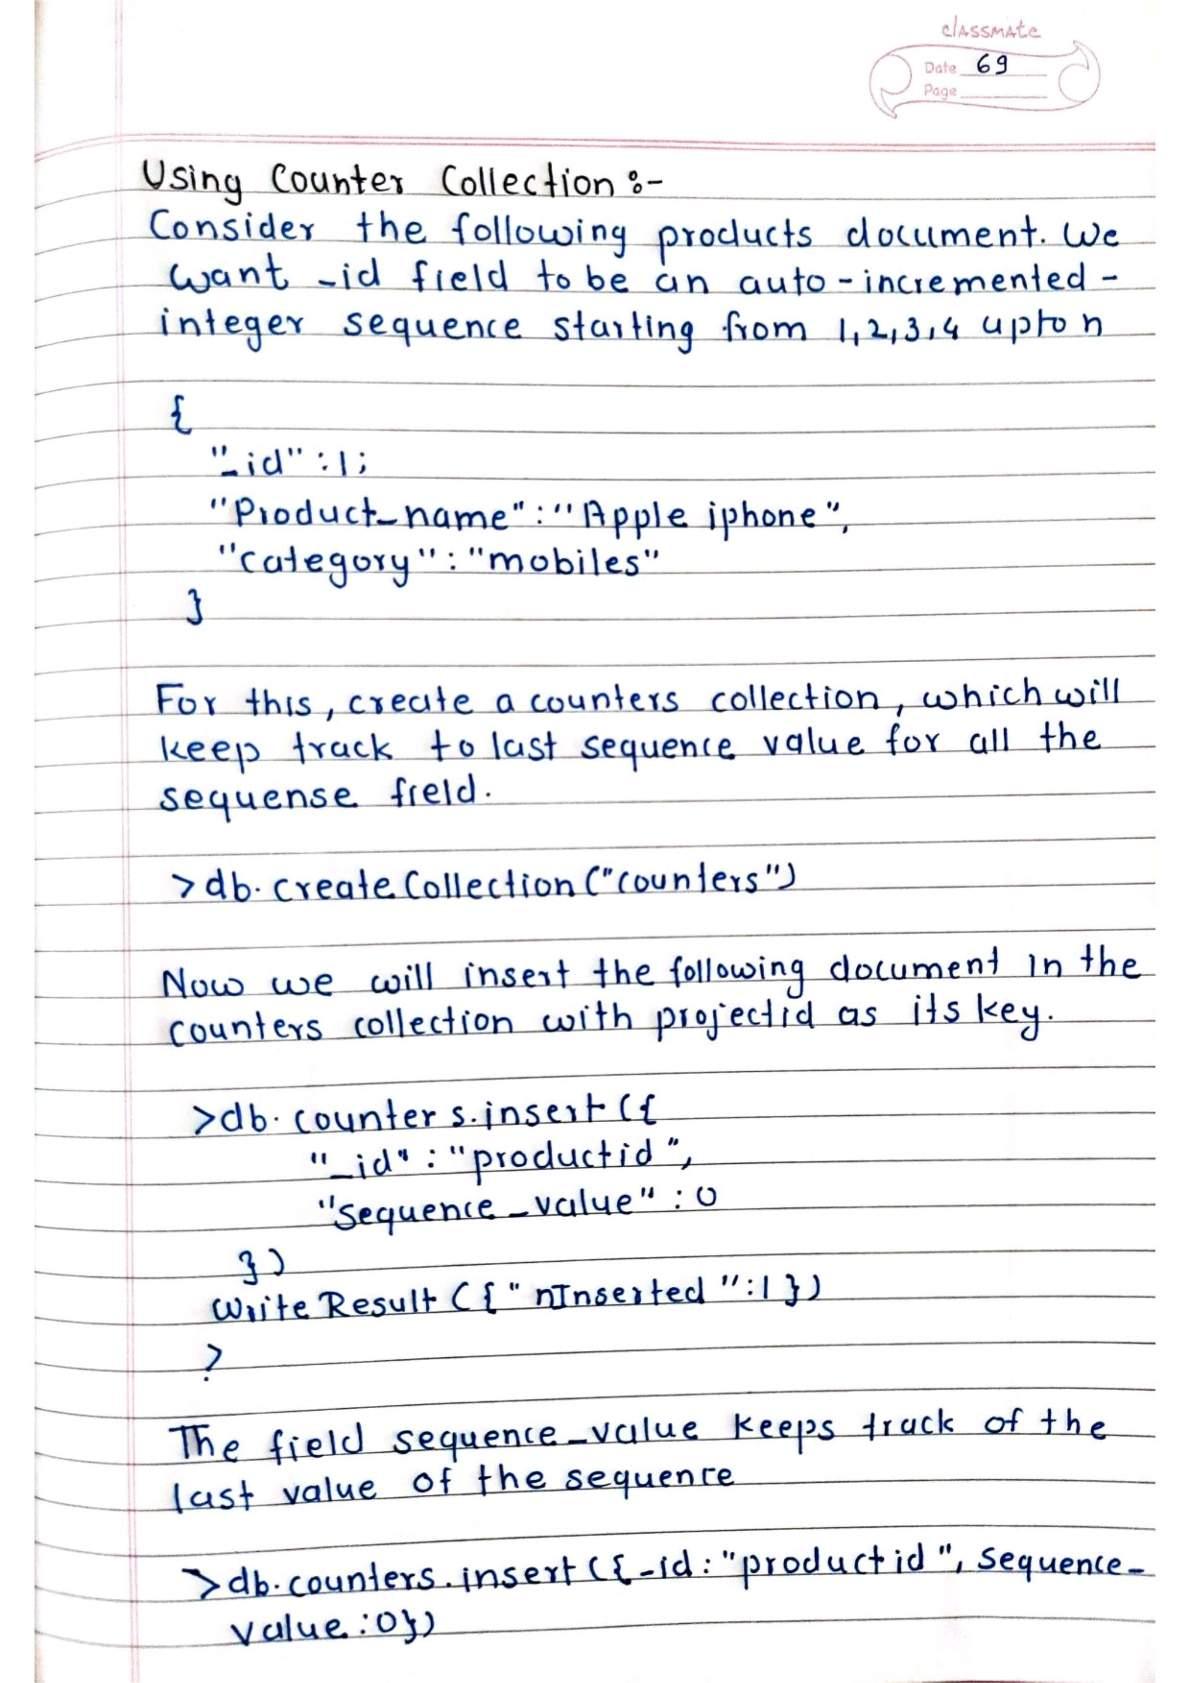 classmate
Date 69
Page
Using Counter Collection :-
Consider the following products document. We
want _id field to be an auto-incremented-
integer sequence starting from 1,2,3,4 upto n
{
"_id":1;
"Product_name":"Apple iphone",
"category":"mobiles"
}
For this, create a counters collection, which will
keep track to last sequence value for all the
sequense field.
>db.createCollection("counters")
Now we will insert the following document in the
counters collection with projectid as its key.
>db.counters.insert({
"_id":"productid",
"sequence_value":0
})
WriteResult({"nInserted":1})
?
The field sequence_value keeps track of the
last value of the sequence
>db.counters.insert({_id:"productid", sequence_
value:0})